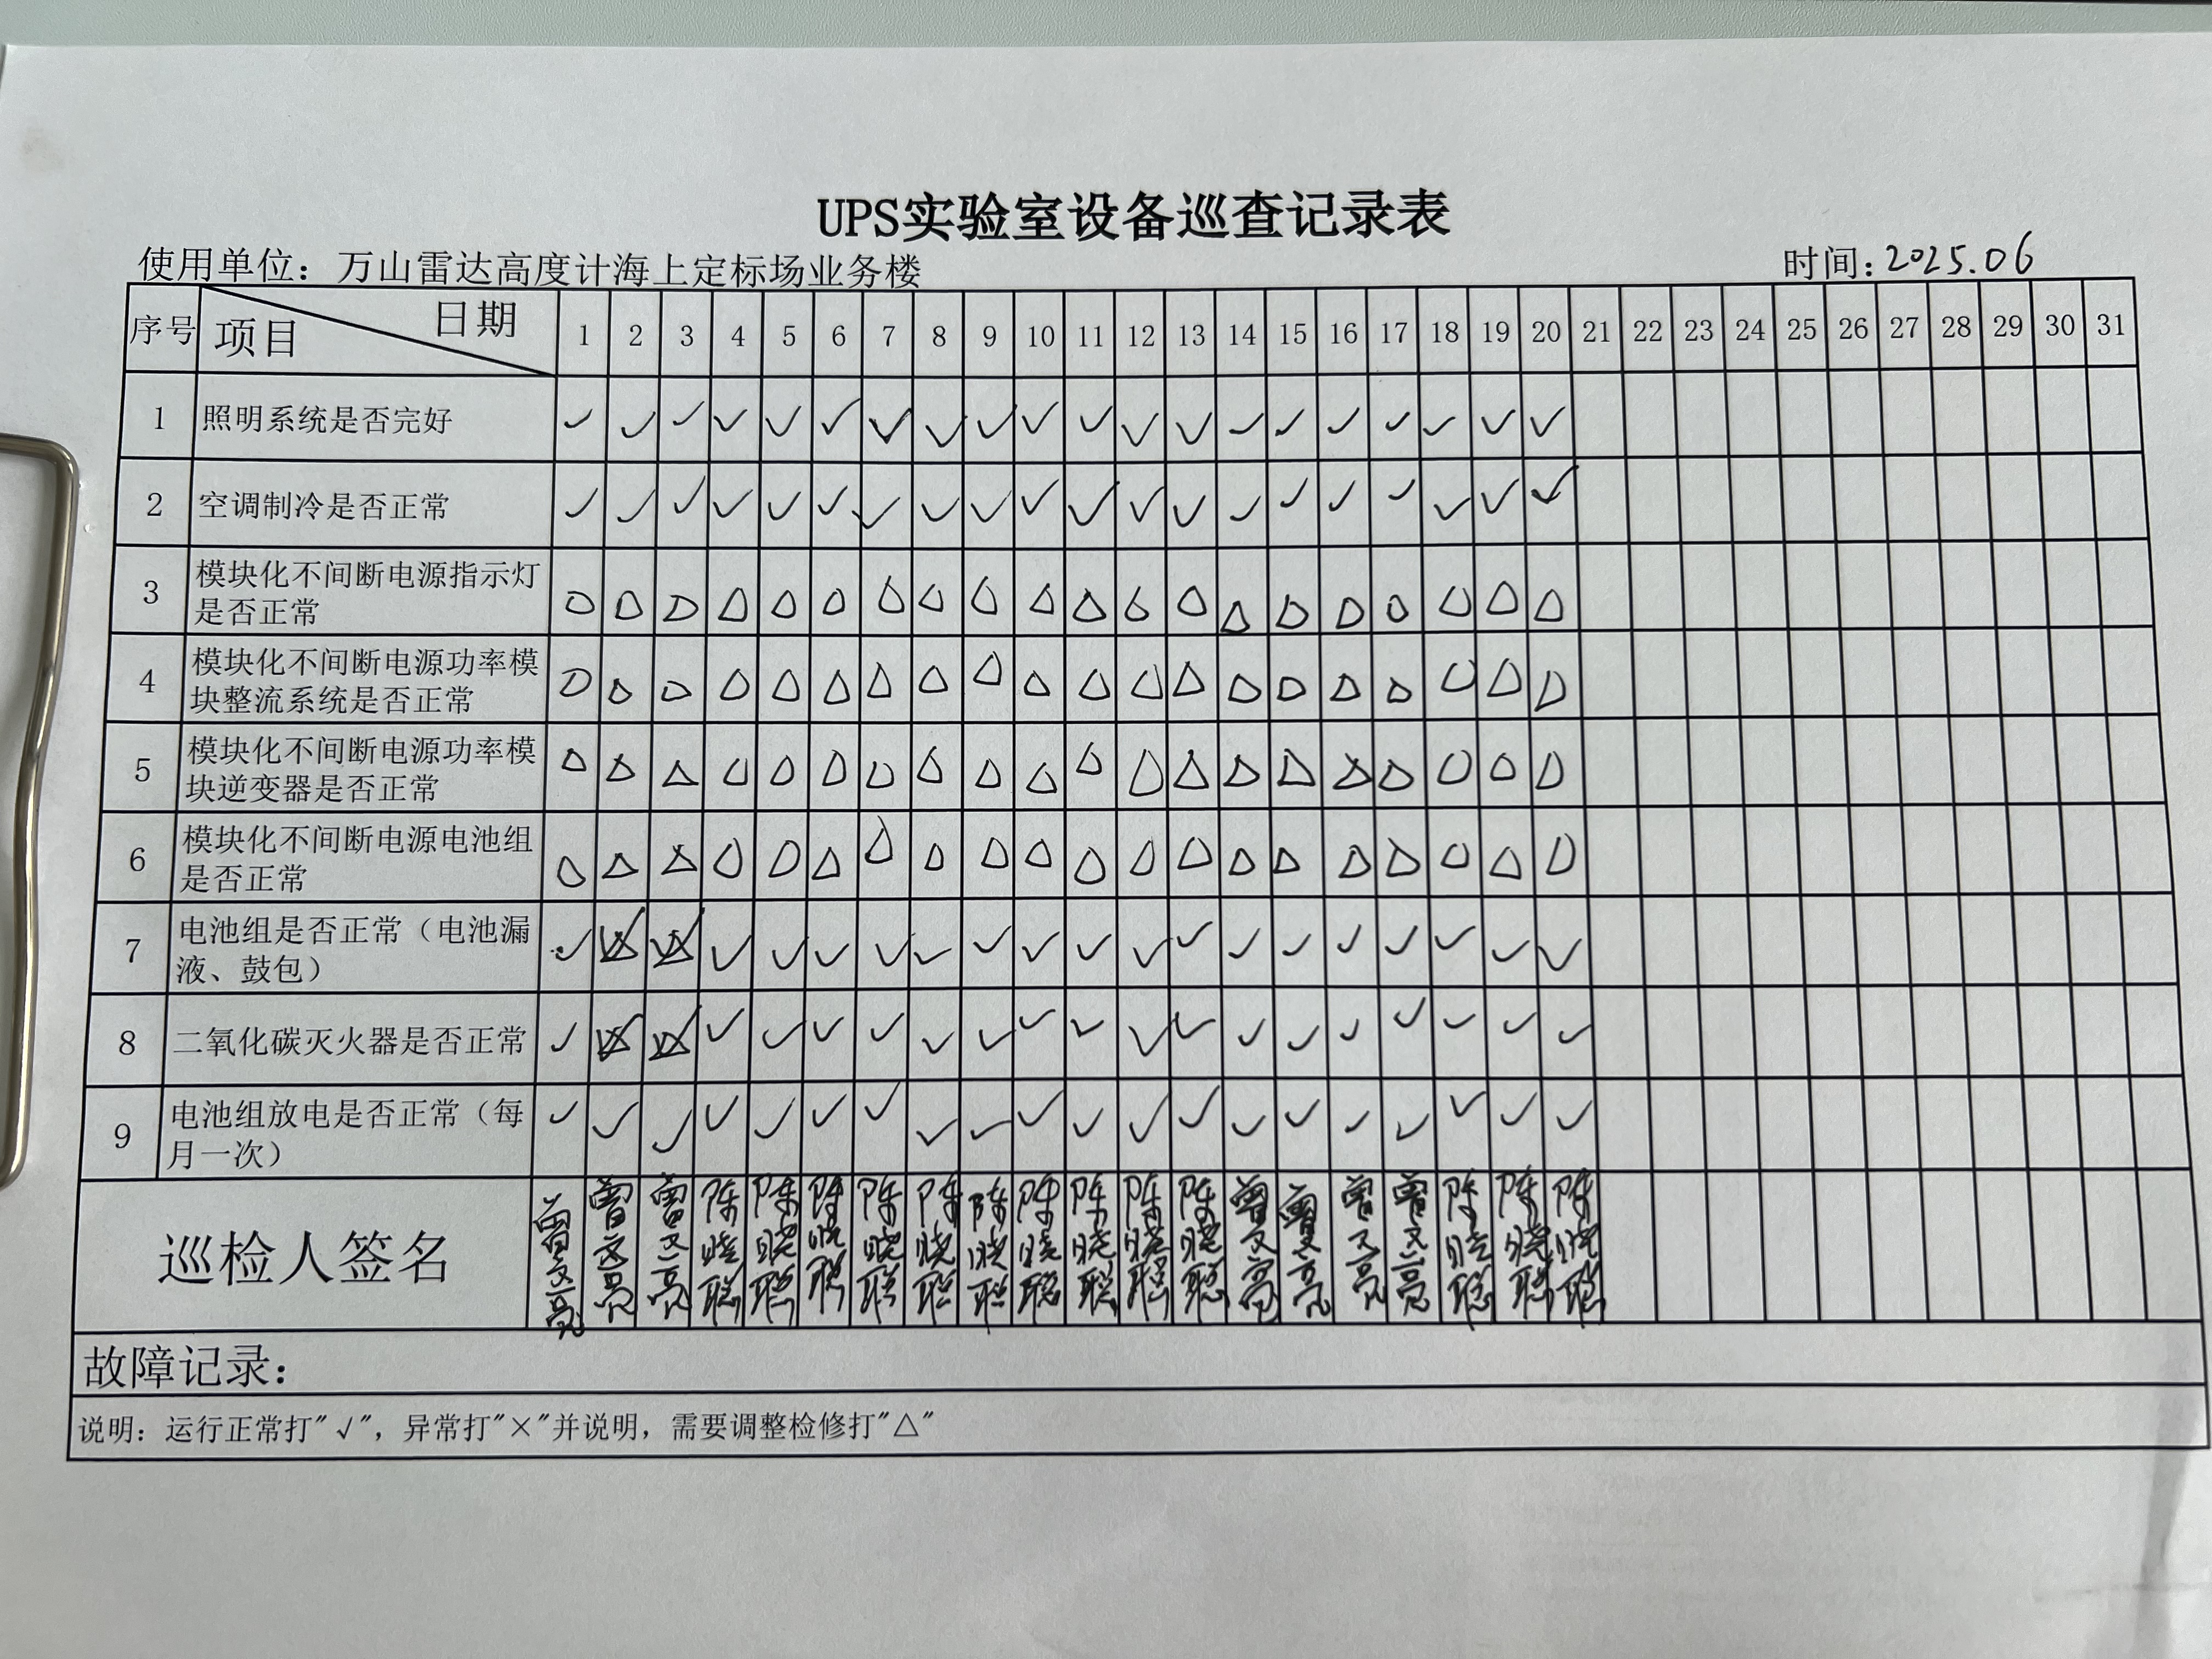 UPS实验室设备巡查记录表
使用单位：万山雷达高度计海上定标场业务楼 时间：2025.06
序号 项目 日期 1 2 3 4 5 6 7 8 9 10 11 12 13 14 15 16 17 18 19 20 21 22 23 24 25 26 27 28 29 30 31
1 照明系统是否完好 ✓ ✓ ✓ ✓ ✓ ✓ ✓ ✓ ✓ ✓ ✓ ✓ ✓ ✓ ✓ ✓ ✓ ✓ ✓ ✓
2 空调制冷是否正常 ✓ ✓ ✓ ✓ ✓ ✓ ✓ ✓ ✓ ✓ ✓ ✓ ✓ ✓ ✓ ✓ ✓ ✓ ✓ ✓
3 模块化不间断电源指示灯
是否正常 △ △ △ △ △ △ △ △ △ △ △ △ △ △ △ △ △ △ △ △
4 模块化不间断电源功率模
块整流系统是否正常 △ △ △ △ △ △ △ △ △ △ △ △ △ △ △ △ △ △ △ △
5 模块化不间断电源功率模
块逆变器是否正常 △ △ △ △ △ △ △ △ △ △ △ △ △ △ △ △ △ △ △ △
6 模块化不间断电源电池组
是否正常 △ △ △ △ △ △ △ △ △ △ △ △ △ △ △ △ △ △ △ △
7 电池组是否正常（电池漏
液、鼓包） ✓ ✓ ✓ ✓ ✓ ✓ ✓ ✓ ✓ ✓ ✓ ✓ ✓ ✓ ✓ ✓ ✓ ✓ ✓ ✓
8 二氧化碳灭火器是否正常 ✓ ✓ ✓ ✓ ✓ ✓ ✓ ✓ ✓ ✓ ✓ ✓ ✓ ✓ ✓ ✓ ✓ ✓ ✓ ✓
9 电池组放电是否正常（每
月一次） ✓ ✓ ✓ ✓ ✓ ✓ ✓ ✓ ✓ ✓ ✓ ✓ ✓ ✓ ✓ ✓ ✓ ✓ ✓ ✓
巡检人签名 曾文亮 曾文亮 曾文亮 陈晓聪 陈晓聪 陈晓聪 陈晓聪 陈晓聪 陈晓聪 陈晓聪 陈晓聪 陈晓聪 陈晓聪 曾文亮 曾文亮 曾文亮 曾文亮 陈晓聪 陈晓聪 陈晓聪
故障记录：
说明：运行正常打"√"，异常打"×"并说明，需要调整检修打"△"